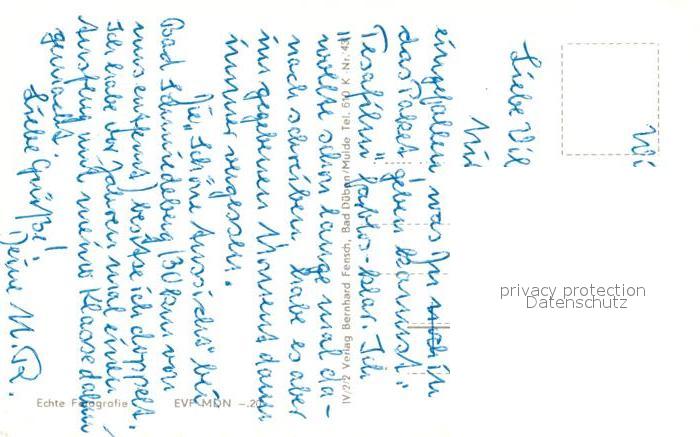 Liebe
Mir
eingefallen was Du noch in
das Paket geben kannst:
Tesafilm farblos-klar. Ich
wollte schon lange mal da-
nach schreiben, habe es aber
im gegebenen Moment dann
immer vergessen.
Die "Schöne Aussicht" bei
Bad Schmiedeberg (30 km von
uns entfernt) besitze ich doppelt.
Ich habe vor Jahren mal einen
Ausflug mit meiner Klasse dahin
gemacht.
Liebe Grüße!
Deine M. R.
IV/2/2 Verlag Bernhard Fensch, Bad Düben/Mulde Tel. 610 K Nr. 43
Echte Fotografie EVP MDN –.20
privacy protection
Datenschutz